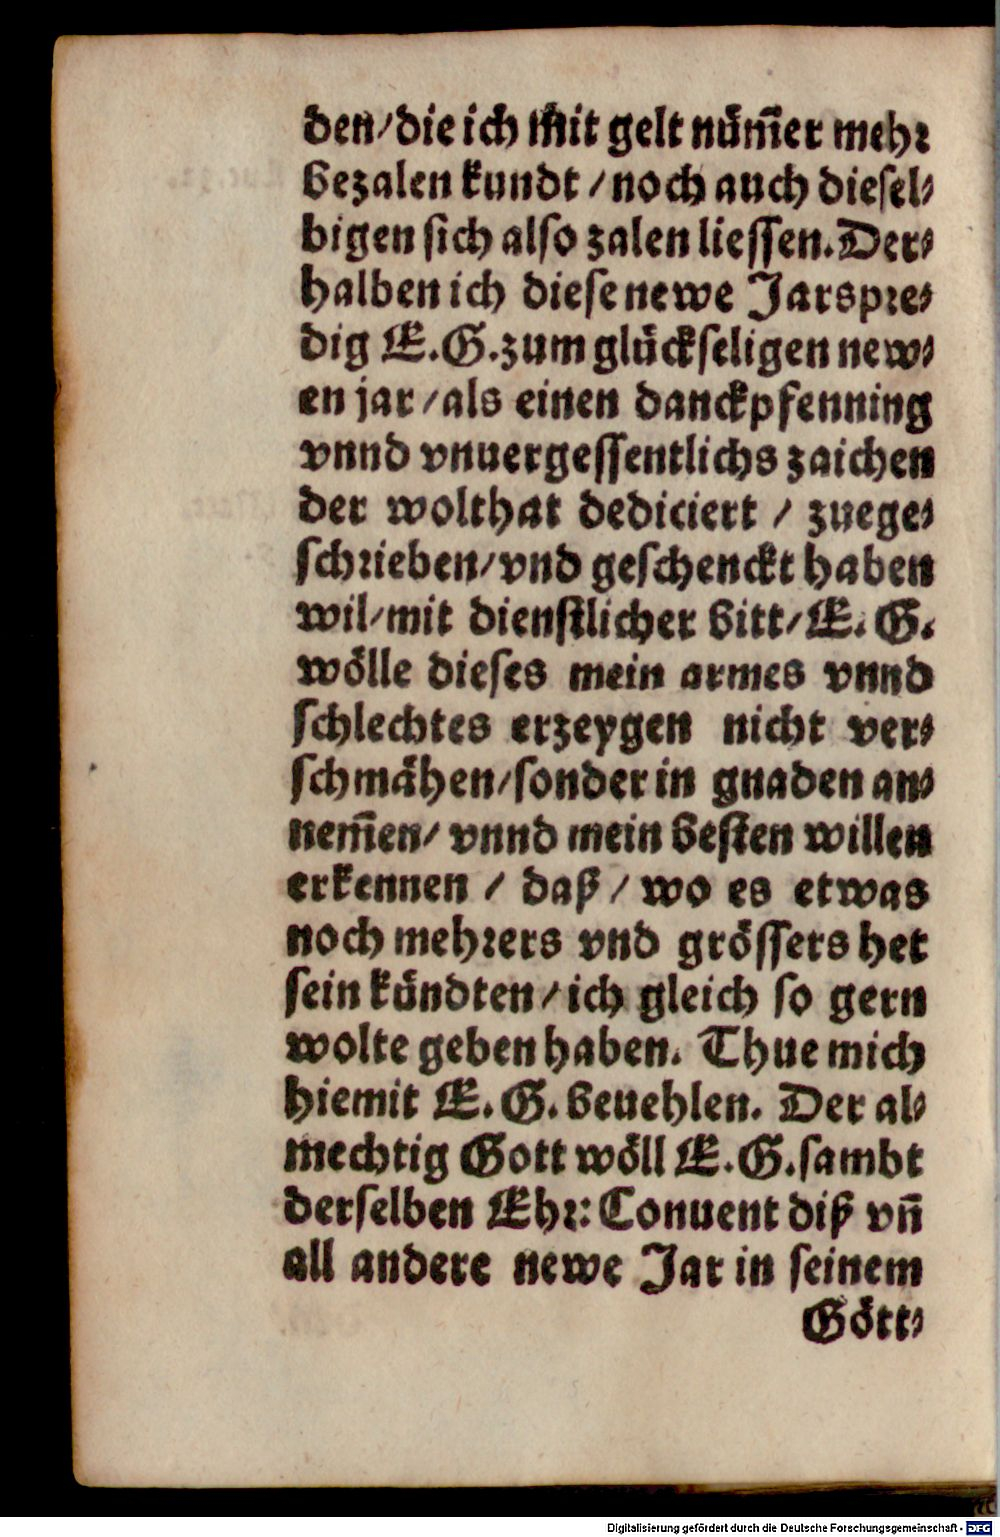 den/die ich mit gelt nüm̃er mehr
bezalen kundt / noch auch diesel⸗
bigen sich also zalen liessen. Der⸗
halben ich diese newe Jarspre⸗
dig E. G. zum glückseligen new⸗
en jar / als einen danckpfenning
vnnd vnuergessentlichs zaichen
der wolthat dediciert / zuege⸗
schrieben / vnd geschenckt haben
wil / mit dienstlicher bitt / E. G.
wölle dieses mein armes vnnd
schlechtes erzeygen nicht ver⸗
schmähen / sonder in gnaden an⸗
nem̃en / vnnd mein besten willen
erkennen / daß / wo es etwas
noch mehrers vnd grössers het
sein kündten / ich gleich so gern
wolte geben haben. Thue mich
hiemit E. G. beuehlen. Der al⸗
mechtig Gott wöll E. G. sambt
derselben Ehr: Conuent diß vñ
all andere newe Jar in seinem
Gött⸗
Digitalisierung gefördert durch die Deutsche Forschungsgemeinschaft - DFG